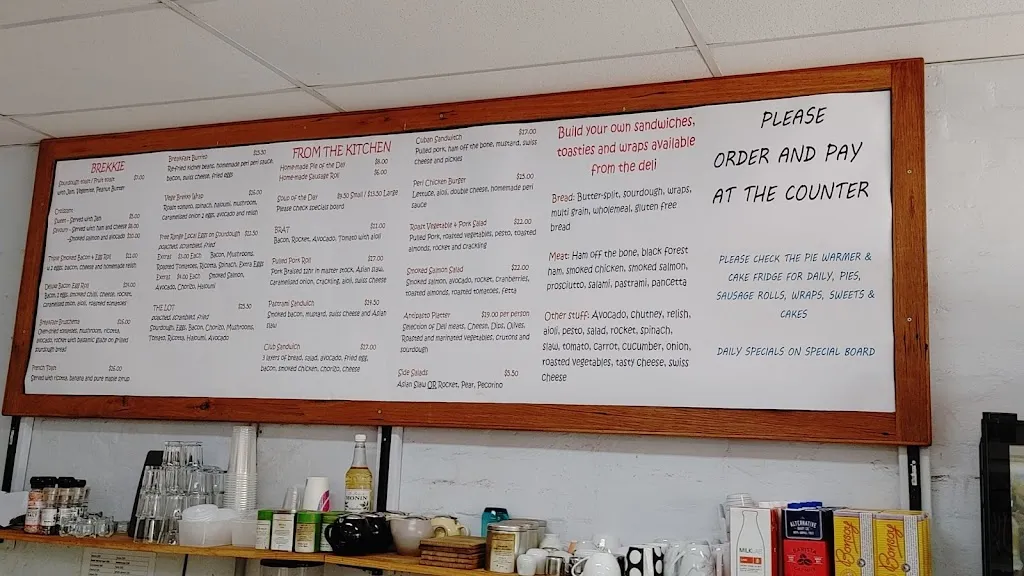 BREKKIE
Sourdough toast / Fruit toast $7.00
with Jam, Vegemite, Peanut Butter
Croissant
Sweet - Served with Jam
Savoury - Served with ham and cheese
-Smoked salmon and avocado $10.00
Triple Smoked Bacon + Egg Roll
w 2 eggs, bacon, cheese and homemade relish
Deluxe Bacon Egg Roll
Bacon, 2 eggs, smoked chilli, cheese, rocket,
caramelised onion, aioli, roasted tomatoes
Breakfast Bruschetta
Oven-dried tomatoes, mushroom, ricotta,
avocado, rocket with balsamic glaze on grilled
sourdough bread
French Toast
Served with ricotta, banana and pure maple syrup
Breakfast Burrito
Re-fried kidney beans, homemade peri peri sauce,
bacon, swiss cheese, fried eggs
Vege Brekky Wrap
Roast tomato, spinach, haloumi, mushroom,
caramelised onion 2 eggs, avocado and relish
Free Range Local Eggs on Sourdough
poached, scrambled, fried
Extras Each Bacon, Mushrooms,
Roasted Tomatoes, Ricotta, Spinach, Extra Eggs
Extras Each Smoked Salmon,
Avocado, Chorizo, Haloumi
THE LOT
poached, scrambled, fried
Sourdough, Eggs, Bacon, Chorizo, Mushrooms,
Tomato, Ricotta, Haloumi, Avocado
FROM THE KITCHEN
Home-made Pie of the Day
Home-made Sausage Roll
Soup of the Day $9.50 Small / $13.50 Large
Please check specials board
BRAT
Bacon, Rocket, Avocado, Tomato with aioli
Pulled Pork Roll $17.00
Pork Braised 12hr in master stock, Asian slaw,
caramelised onion, crackling, aioli, swiss cheese
Pastrami Sandwich $14.50
Smoked bacon, mustard, swiss cheese and Asian
slaw
Club Sandwich $17.00
3 layers of bread, salad, avocado, fried egg,
bacon, smoked chicken, chorizo, cheese
Cuban Sandwitch $17.00
Pulled pork, ham off the bone, mustard, swiss
cheese and pickles
Peri Chicken Burger $15.00
Lettuce, aioli, double cheese, homemade peri
sauce
Roast Vegetable + Pork Salad $22.00
Pulled Pork, roasted vegetables, pesto, toasted
almonds, rocket and crackling
Smoked Salmon Salad $22.00
Smoked salmon, avocado, rocket, cranberries,
toasted almonds, roasted tomatoes, fetta
Antipasto Platter $19.00 per person
Selection of Deli meats, Cheese, Dips, Olives,
Roasted and marinated vegetables, crutons and
sourdough
Side Salads $5.50
Asian Slaw OR Rocket, Pear, Pecorino
Build your own sandwiches,
toasties and wraps available
from the deli
Bread: Butter-split, sourdough, wraps,
multi grain, wholemeal, gluten free
bread
Meat: Ham off the bone, black forest
ham, smoked chicken, smoked salmon,
prosciutto, salami, pastrami, pancetta
Other stuff: Avocado, chutney, relish,
aioli, pesto, salad, rocket, spinach,
slaw, tomato, carrot, cucumber, onion,
roasted vegetables, tasty cheese, swiss
cheese
PLEASE
ORDER AND PAY
AT THE COUNTER
PLEASE CHECK THE PIE WARMER &
CAKE FRIDGE FOR DAILY, PIES,
SAUSAGE ROLLS, WRAPS, SWEETS &
CAKES
DAILY SPECIALS ON SPECIAL BOARD
MONIN
MILK
ALTERNATIVE
Bonsoy
Bonsoy